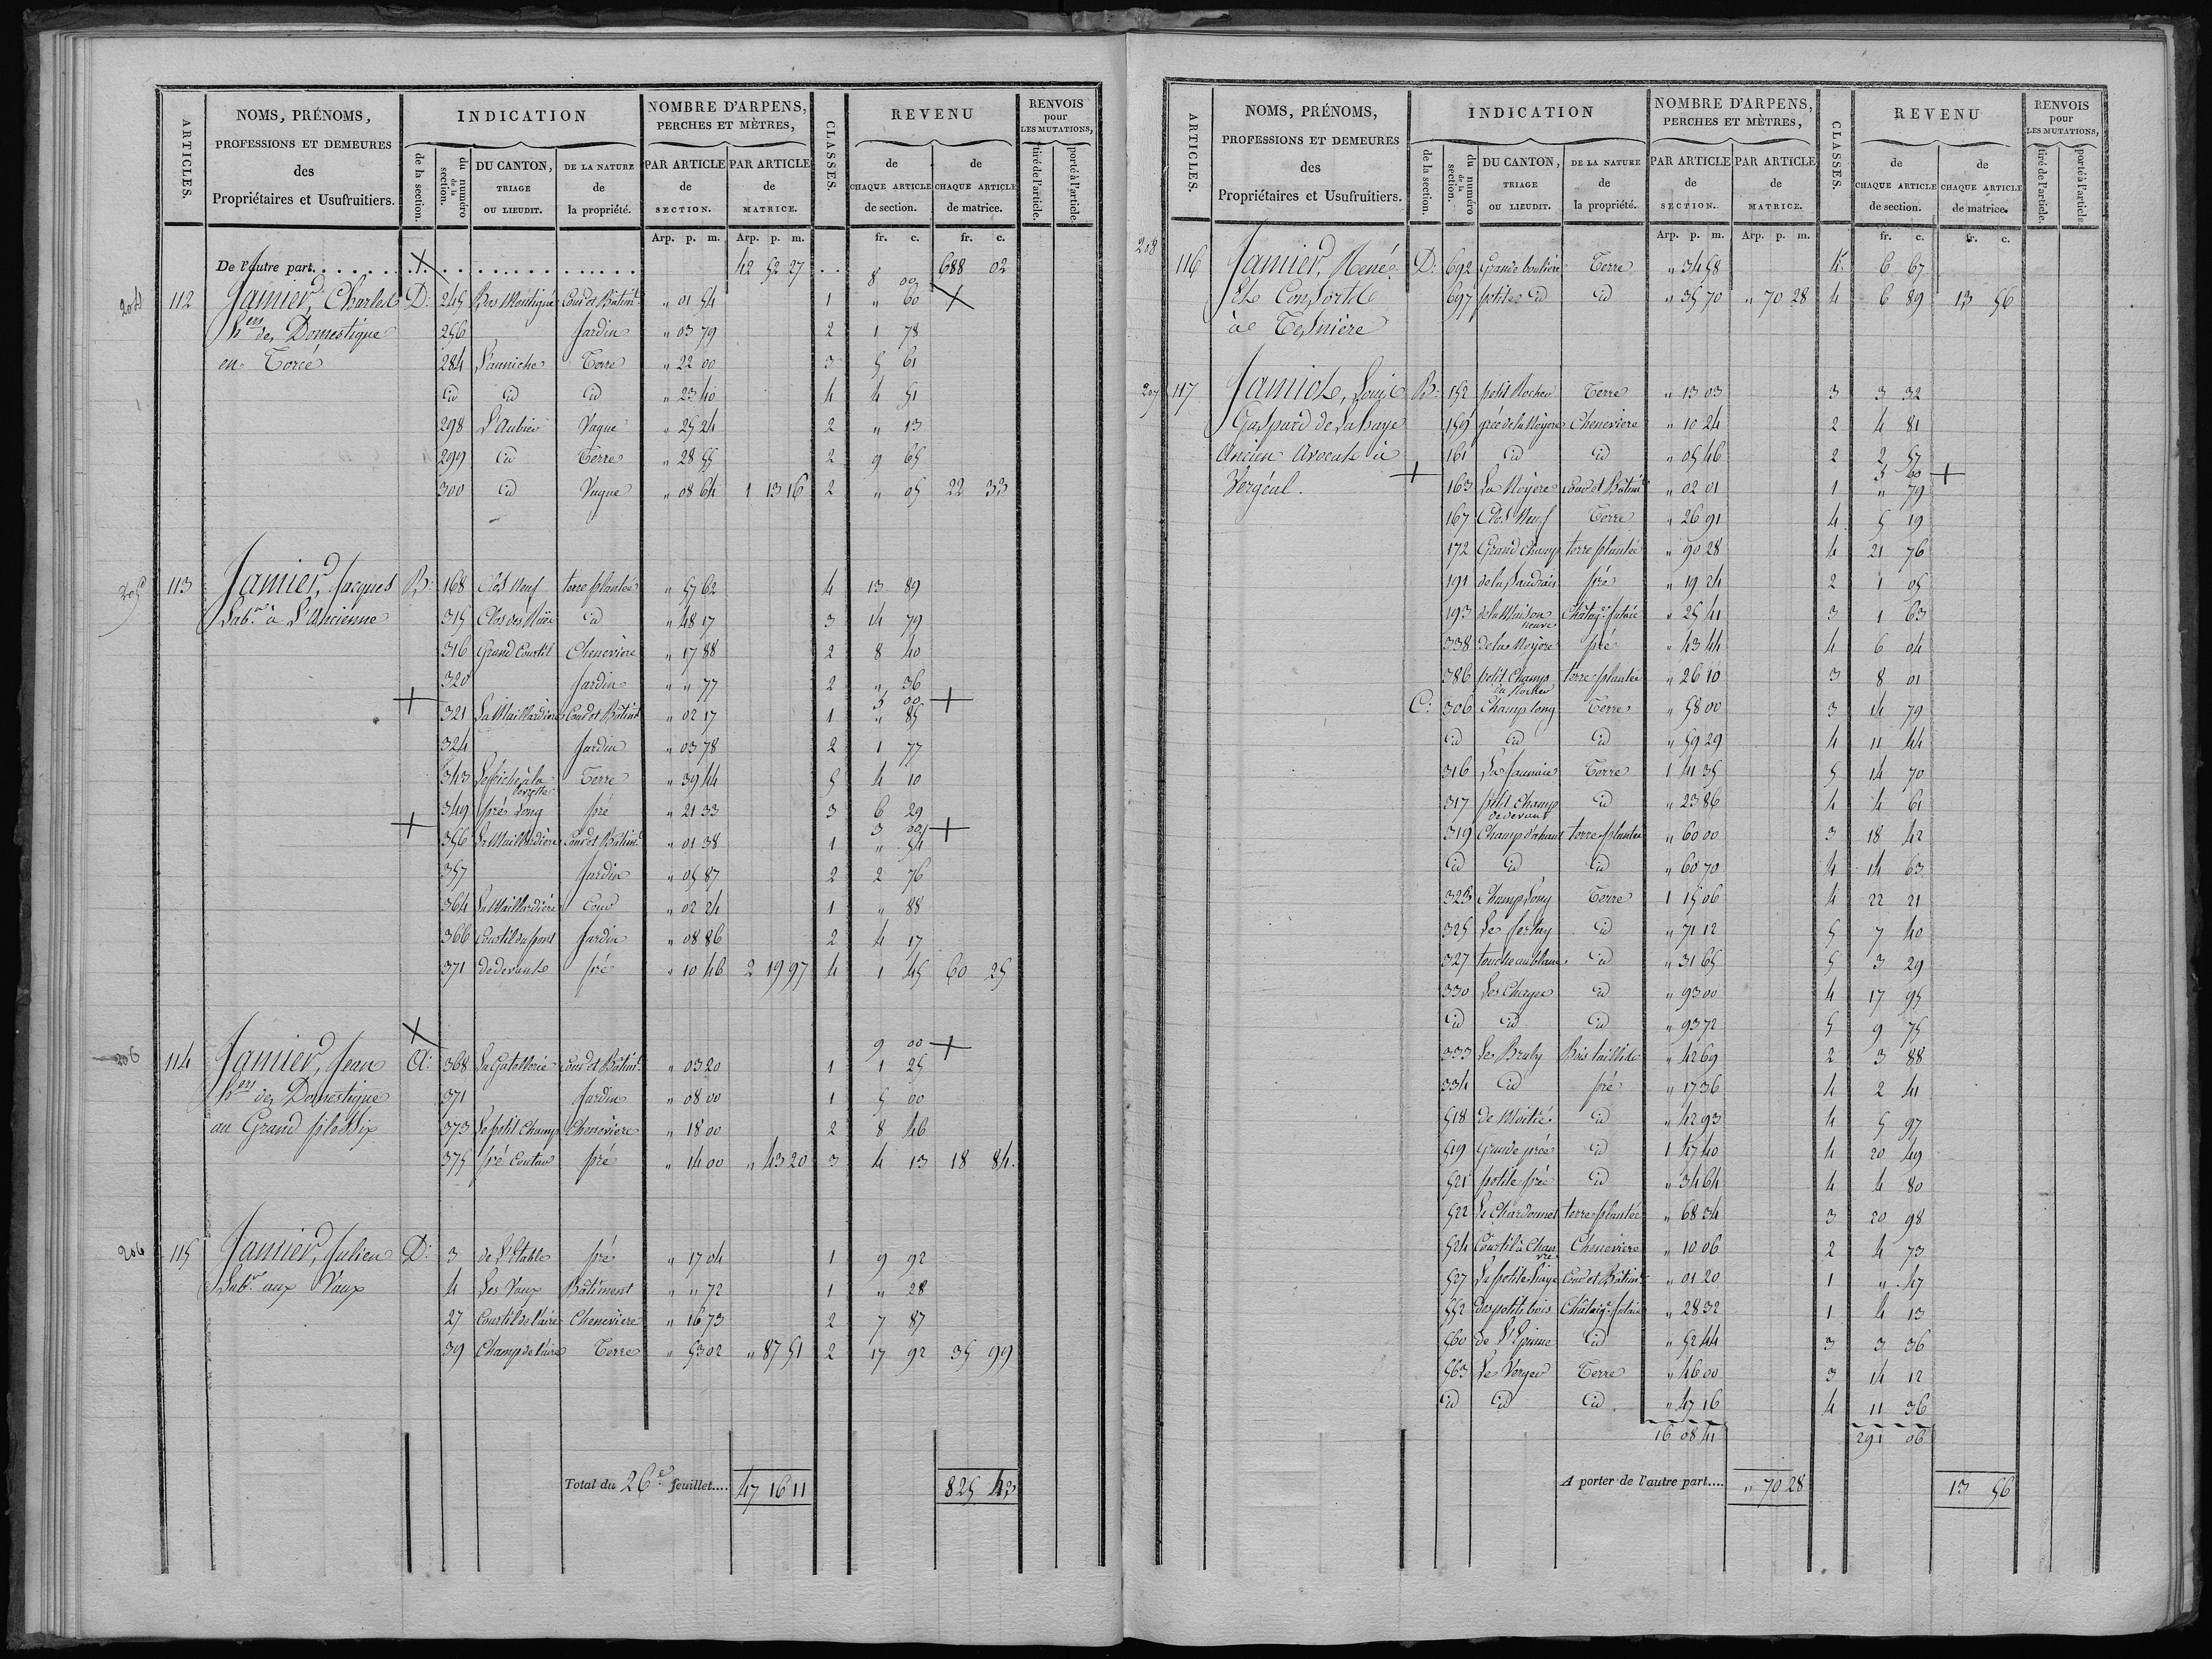 ARTICLES. NOMS, PRÉNOMS, PROFESSIONS ET DEMEURES des Propriétaires et Usufruitiers. INDICATION de la section. du numéro de la section. DU CANTON, TRIAGE OU LIEUDIT. DE LA NATURE de la propriété. NOMBRE D'ARPENS, PERCHES ET MÈTRES, PAR ARTICLE de SECTION. PAR ARTICLE de MATRICE. CLASSES. REVENU de CHAQUE ARTICLE de section. de CHAQUE ARTICLE de matrice. RENVOIS pour LES MUTATIONS, tiré de l'article. porté à l'article.
Arp. p. m. Arp. p. m. fr. c. fr. c.
De l'autre part. 42 52 27 688 02
8 00
204 112 Jamier, Charles D: 245 Bas Montigné Cour et Bâtimt „ 01 54 1 „ 60
hers des Domestique 256 Jardin „ 03 79 2 1 78
en Torcé 284 Terre „ 22 00 3 5 61
id id id „ 23 40 4 4 51
298 L'Aubier Vague „ 25 24 2 „ 13
299 id Terre „ 28 55 2 9 65
300 id Vague „ 08 64 1 13 16 2 „ 05 22 33
205 113 Jamier, Jacques B: 168 Clos Neuf terre plantée „ 57 62 4 13 89
Labr à L'Ancienne 315 id „ 48 17 3 14 79
316 Grand Courtil Cheneviere „ 17 88 2 8 40
320 Jardin „ „ 77 2 „ 36
3 00
321 La Maillardiere Cour et Bâtimt „ 02 17 1 „ 85
324 Jardin „ 03 78 2 1 77
343 Terre „ 39 44 5 4 10
349 pré Long pré „ 21 33 3 6 29
3 00
356 La Maillardiere Cour et Bâtimt „ 01 38 1 „ 54
357 Jardin „ 05 87 2 2 76
364 La Maillardiere Cour „ 02 24 1 „ 88
366 Courtil du pont Jardin „ 08 86 2 4 17
371 de devant pré „ 10 46 2 19 97 4 1 45 60 25
9 00
206 114 Jamier, Jean A: 368 La Gatellerie Cour et Bâtimt „ 03 20 1 1 25
hers des Domestique 371 Jardin „ 08 00 1 5 00
au Grand plessix 373 Le petit Champ Cheneviere „ 18 00 2 8 46
375 pré pré „ 14 00 „ 43 20 3 4 13 18 84
206 115 Jamier, Julien D: 3 de l'Etable pré „ 17 04 1 9 92
Labr aux Vaux 4 Les Vaux Bâtiment „ „ 72 1 „ 28
27 Courtil de l'aire Cheneviere „ 16 73 2 7 87
39 Champ de l'aire Terre „ 53 02 „ 87 51 2 17 92 35 99
Total du 26e feuillet.... 47 16 11 825 43
ARTICLES. NOMS, PRÉNOMS, PROFESSIONS ET DEMEURES des Propriétaires et Usufruitiers. INDICATION de la section. du numéro de la section. DU CANTON, TRIAGE OU LIEUDIT. DE LA NATURE de la propriété. NOMBRE D'ARPENS, PERCHES ET MÈTRES, PAR ARTICLE de SECTION. PAR ARTICLE de MATRICE. CLASSES. REVENU de CHAQUE ARTICLE de section. de CHAQUE ARTICLE de matrice. RENVOIS pour LES MUTATIONS, tiré de l'article. porté à l'article.
Arp. p. m. Arp. p. m. fr. c. fr. c.
208 116 Jamier, René D: 692 Grande Terre „ 34 58 4 6 67
Et Consorts 697 petite id id „ 35 70 „ 70 28 4 6 89 13 56
à Tesnière
207 117 Jamiot, Louis B: 152 petit Rocher Terre „ 13 03 3 3 32
Gaspard de Lahaye 159 Cheneviere „ 10 24 2 4 81
Ancien Avocat à 161 id id „ 05 46 2 2 57
3 60
Vergéal. 163 La Noyere Cour et Bâtimt „ 02 01 1 „ 79
167 Clos Neuf Terre „ 26 91 4 5 19
172 Grand Champ terre plantée „ 90 28 4 21 76
191 pré „ 19 24 2 1 05
193 de la Maison neuve Châtaigr futaie „ 25 41 3 1 63
338 de la Noyere pré „ 43 44 4 6 04
386 petit Champ du Rocher terre plantée „ 26 10 3 8 01
C: 306 Champ long Terre „ 58 00 3 14 79
id id id „ 59 29 4 11 44
316 La Jaunaie Terre 1 41 35 5 14 70
317 petit Champ de devant id „ 23 86 4 4 61
319 terre plantée „ 60 00 3 18 42
id id id „ 60 70 4 14 63
323 Champ Long Terre 1 15 06 4 22 21
325 id „ 71 12 5 7 40
327 id „ 31 65 5 3 29
330 id „ 93 00 4 17 95
id id id „ 93 72 5 9 75
333 Bois taillis „ 42 69 2 3 88
334 id pré „ 17 36 4 2 41
518 id „ 42 93 4 5 97
519 Grande prée id 1 47 40 4 20 49
521 petite prée id „ 34 64 4 4 80
522 Le Chardonnet terre plantée „ 68 34 3 20 98
524 Courtil à Chanvre Cheneviere „ 10 06 2 4 73
527 La petite haye Cour et Bâtimt „ 01 20 1 „ 47
552 des petits bois Châtaigr futaie „ 28 32 1 4 13
560 de l'Epine id „ 52 44 3 3 36
563 Le Verger Terre „ 46 00 3 14 12
id id id „ 47 16 4 11 36
16 08 41 291 06
A porter de l'autre part.... „ 70 28 13 56